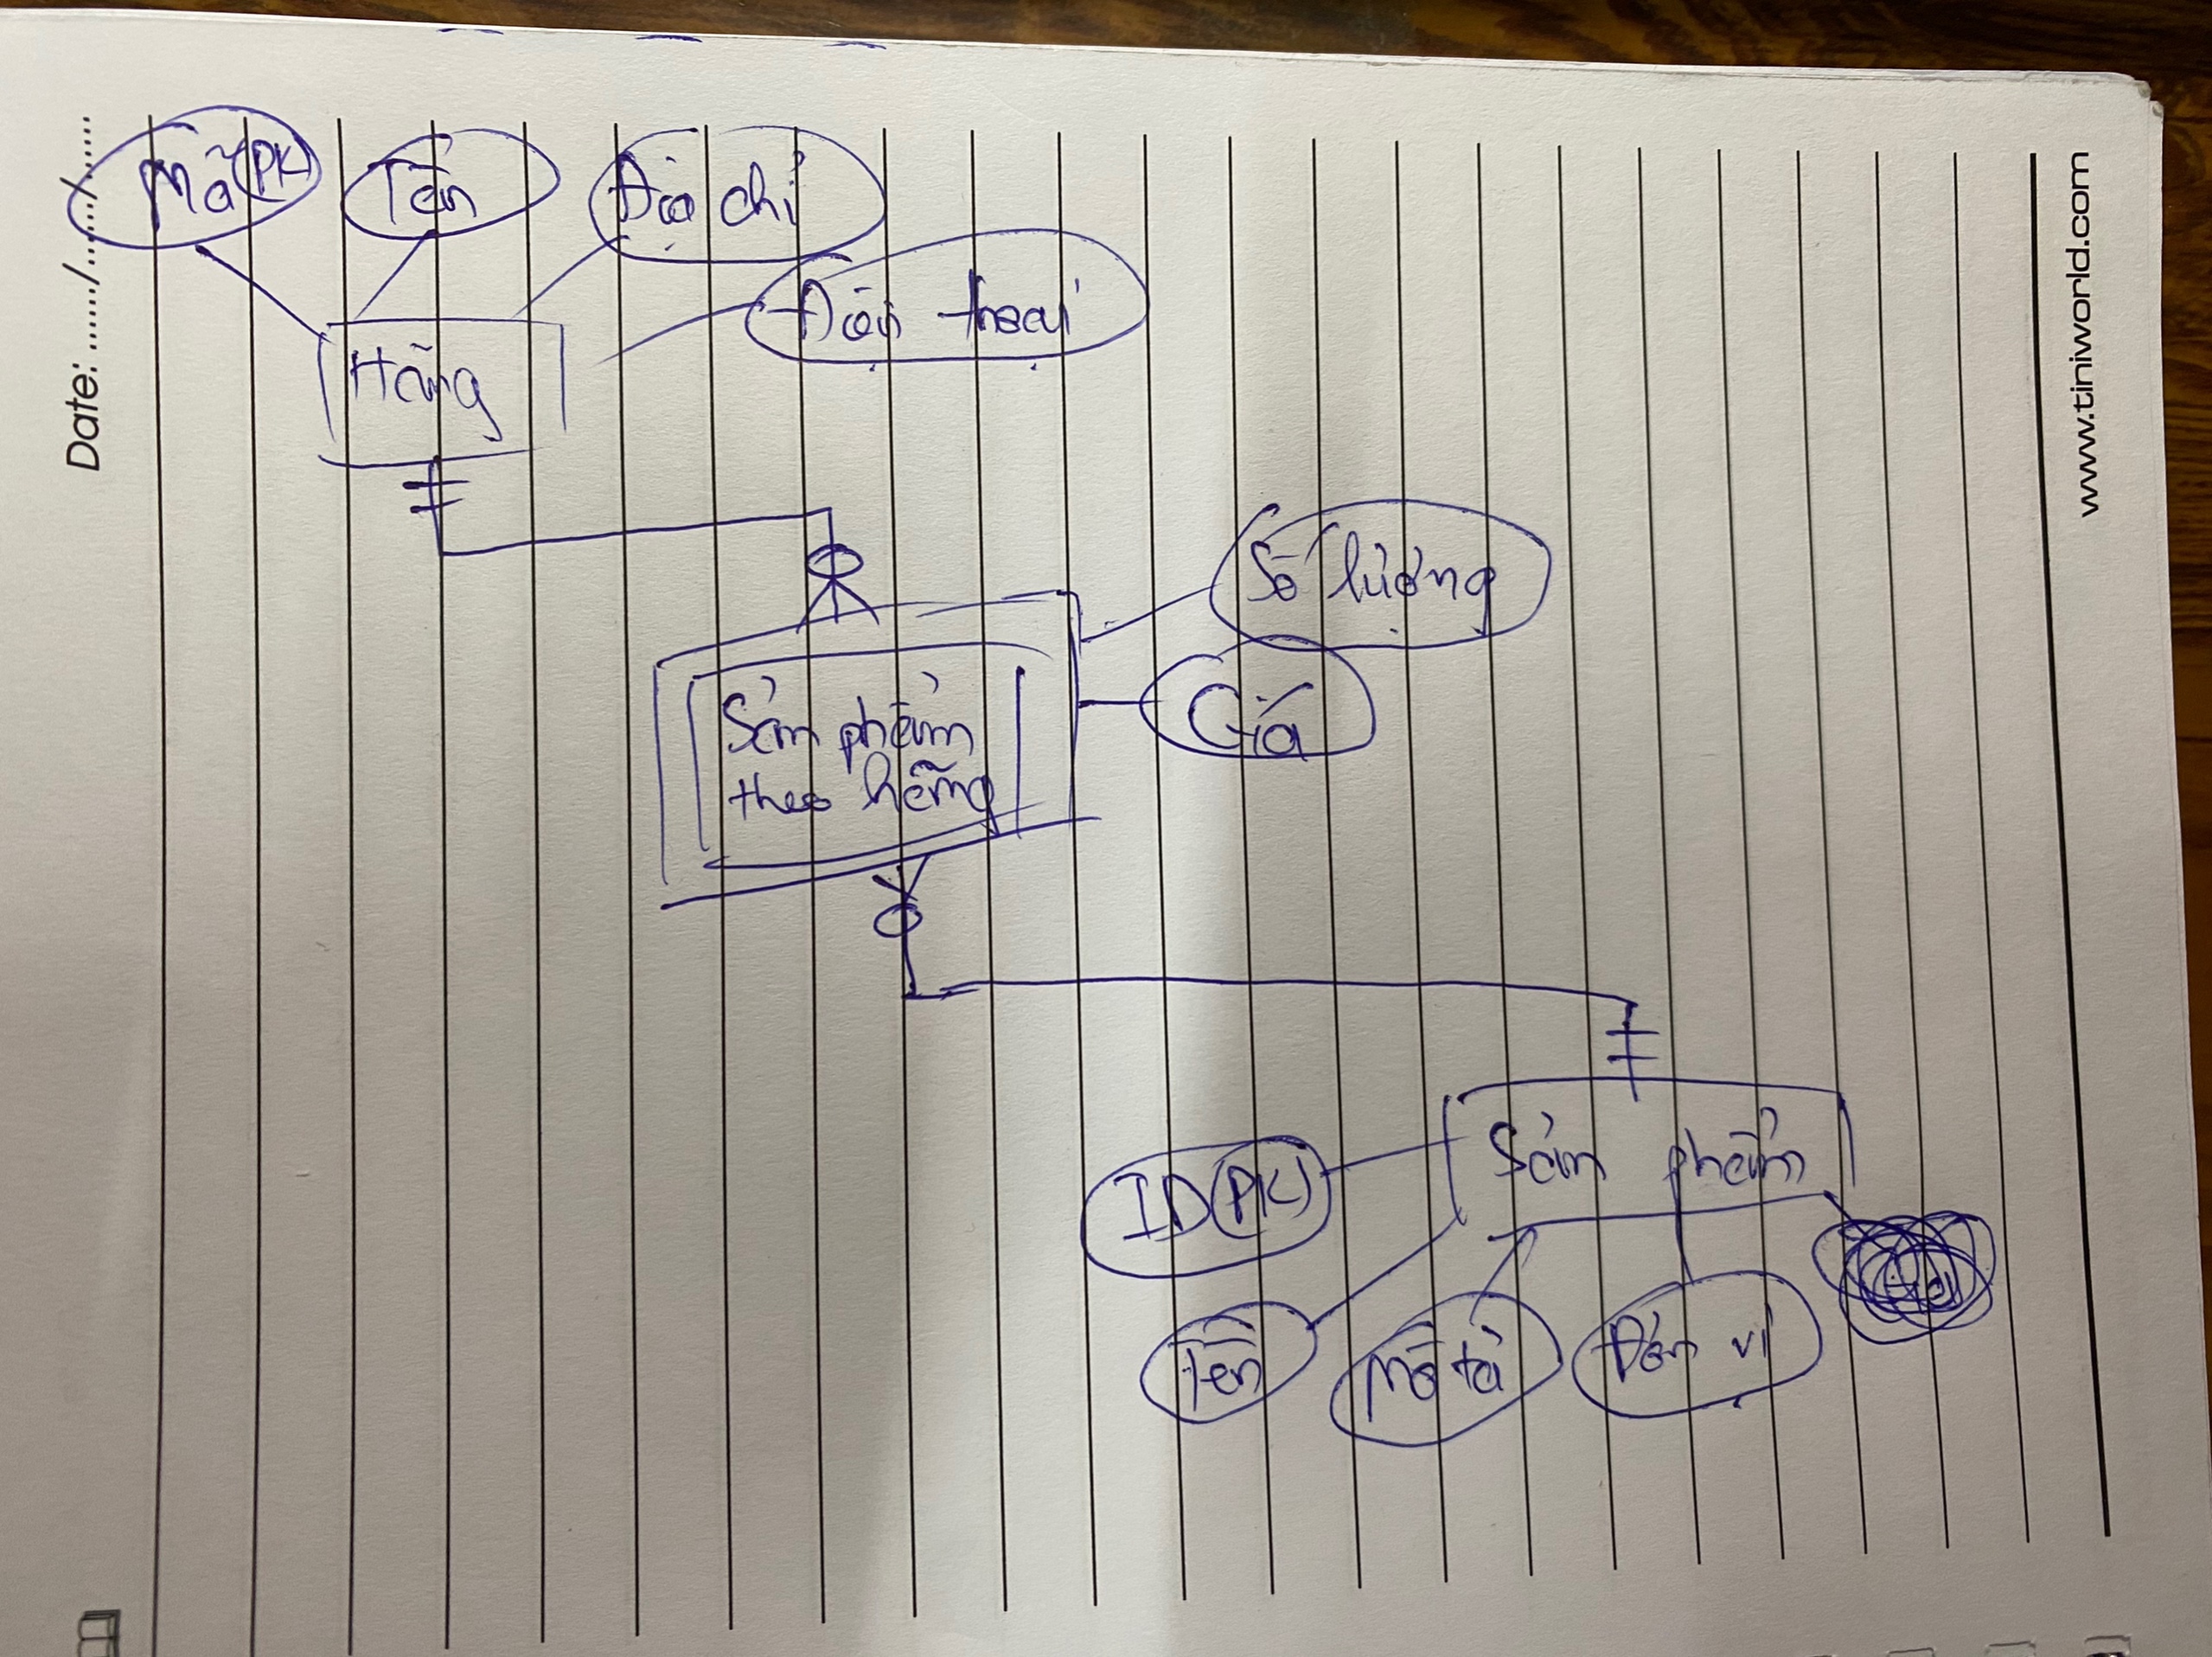 Mã (PK)
Tên
Địa chỉ
Điện thoại
Hãng
Số lượng
Giá
Sản phẩm
theo hãng
Sản phẩm
ID (PK)
Tên
Mô tả
Đơn vị
Date: ....../......./......
www.tiniworld.com